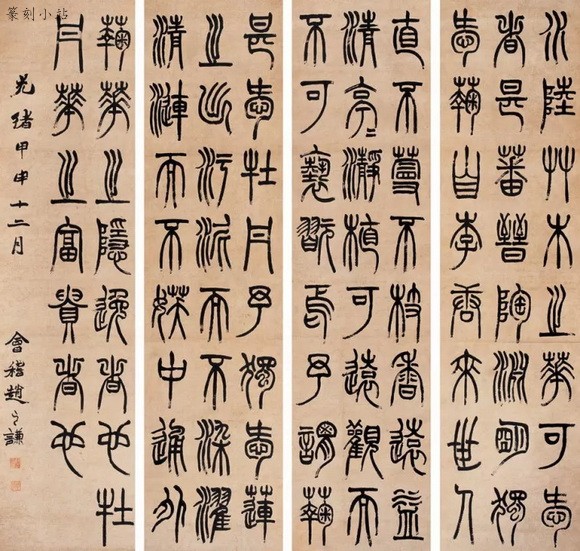 篆刻小站
水陸艸木之華可愛
者甚蕃晉陶淵明獨
愛鞠自李唐來世人
直不蔓不枝香遠益
清亭亭瀞植可遠觀而
不可褻翫焉予謂鞠
甚愛牡丹予獨愛蓮
之出汙泥而不染濯
清漣而不妖中通外
鞠華之隱逸者也牡
丹華之富貴者也
光緒甲申十二月
會稽趙之謙